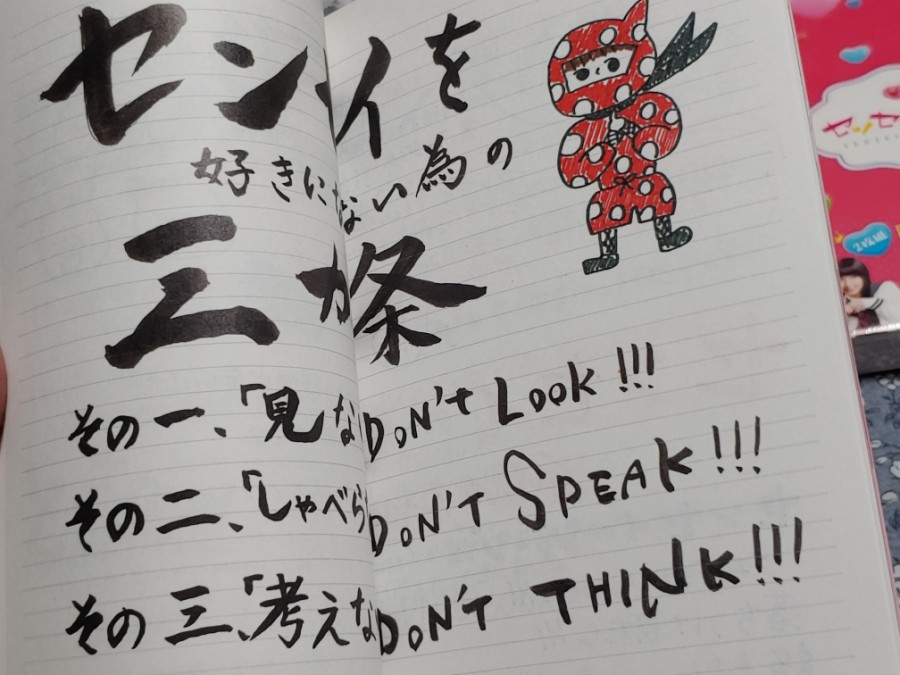 センイを
好きにない為の
三カ条
その一、「見な DON'T LOOK!!!
その二、「しゃべら DON'T SPEAK!!!
その三、「考えな DON'T THINK!!!
センセ